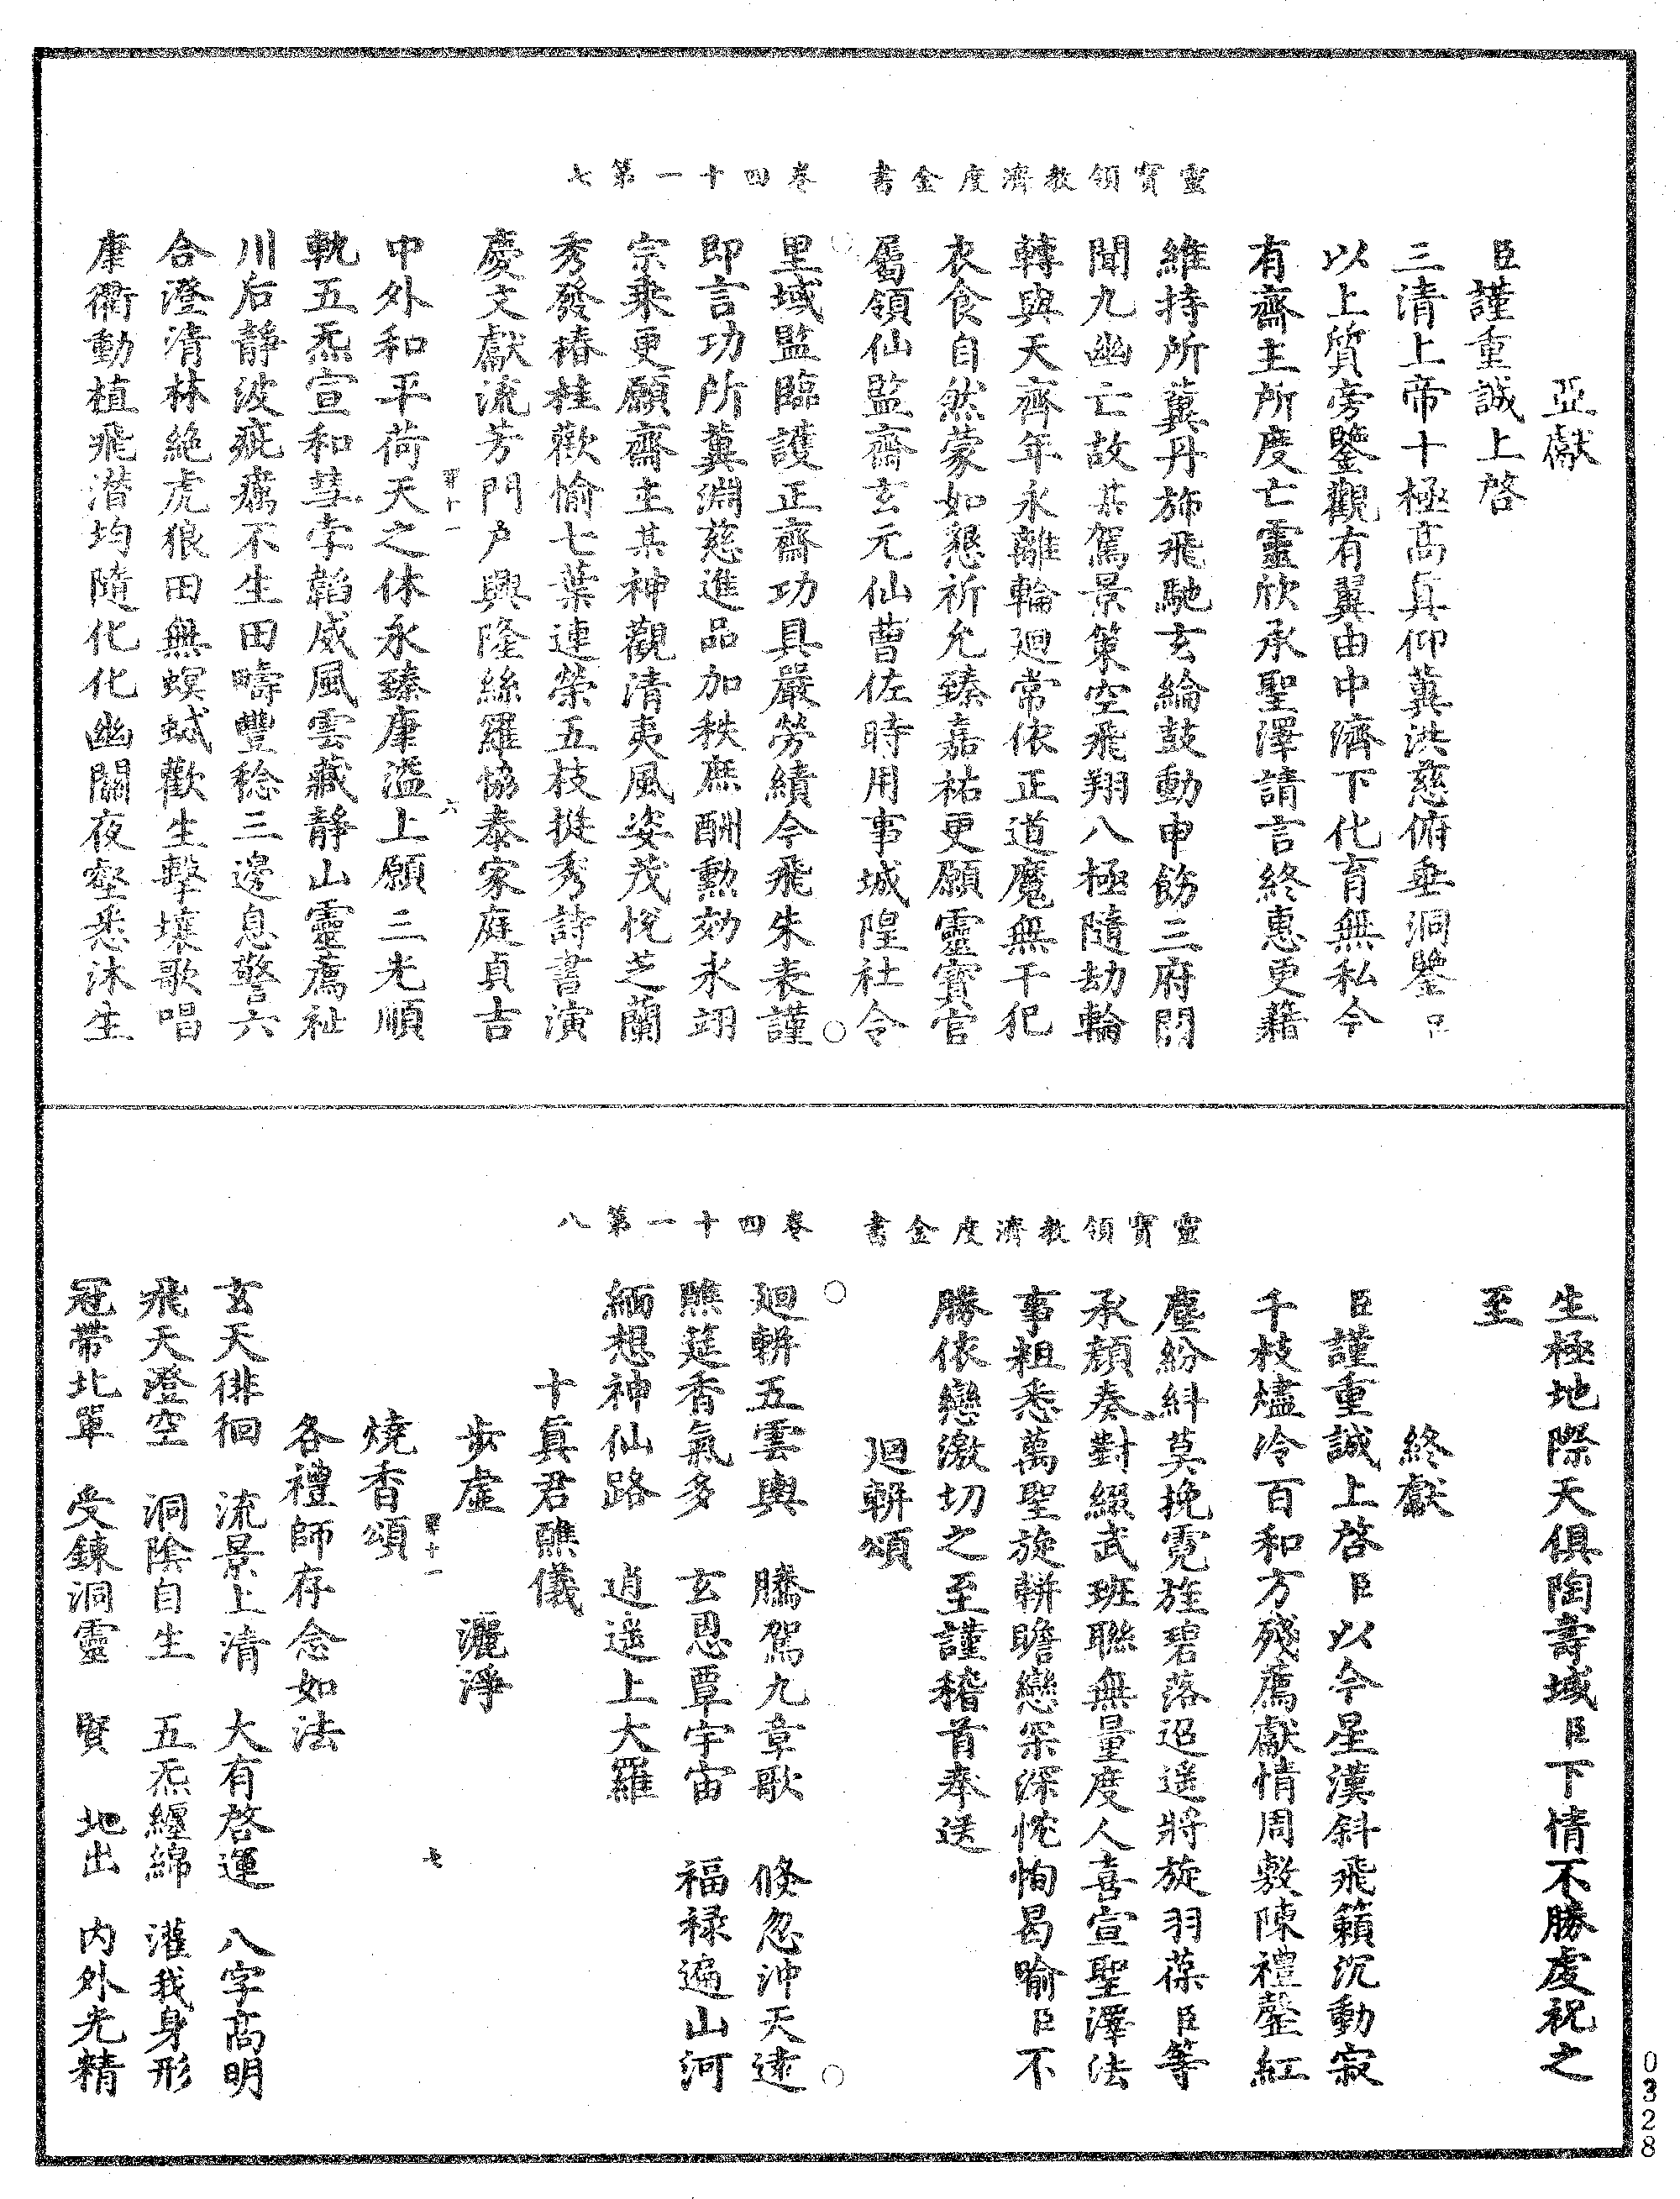 靈寶領教濟度金書　卷四十一第七
亞獻
臣謹重誠上啓
三清上帝十極高真仰冀洪慈俯垂洞鑒臣
以上質旁鑒觀有翼由中濟下化育無私今
有齋主所度亡靈欣承聖澤請言終惠更藉
維持所冀丹旆飛馳玄綸鼓動申飭三府開
聞九幽亡故某駕景策空飛翔八極隨劫輪
轉與天齊年永離輪迴常依正道魔無干犯
衣食自然蒙如懇祈允臻嘉祐更願靈寶官
屬領仙監齋玄元仙曹佐時用事城隍社令
里域監臨護正齋功具嚴勞績今飛朱表謹
即言功所冀淵慈進品加秩庶酬勲効永翊
宗乘更願齋主某神觀清夷風姿茂悅芝蘭
秀發椿桂歡愉七葉連榮五枝挺秀詩書演
慶文獻流芳門戶興隆絲羅協泰家庭貞吉
四十一　六
中外和平荷天之休永臻康溢上願三光順
軌五炁宣和彗孛韜威風雲藏靜山靈薦祉
川后靜波疵癘不生田疇豐稔三邊息警六
合澄清林絶虎狼田無螟蜮歡生擊壤歌唱
康衢動植飛潛均隨化化幽關夜壑悉沐生
靈寶領教濟度金書　卷四十一第八
生極地際天俱陶壽域臣下情不勝虔祝之
至
終獻
臣謹重誠上啓臣以今星漢斜飛籟沉動寂
千枝燼冷百和方殘薦獻情周敷陳禮罄紅
塵紛糾莫挽霓旌碧落迢遥將旋羽葆臣等
承顏奏對綴武班聯無量度人喜宣聖澤法
事粗悉萬聖旋輧瞻戀深深忱恂曷喻臣不
勝依戀激切之至謹稽首奉送
迴輧頌
迴輧五雲輿　騰駕九章歌　倏忽沖天逺
醮筵香氣多　玄恩覃宇宙　福祿遍山河
緬想神仙路　逍遥上大羅
十真君醮儀
步虛　灑淨
四十一　七
燒香頌
各禮師存念如法
玄天徘徊　流景上清　大有啓運　八字高明
飛天澄空　洞陰自生　五炁纏綿　灌我身形
冠帶北單　受錬洞靈　賢地出　內外光精
0328